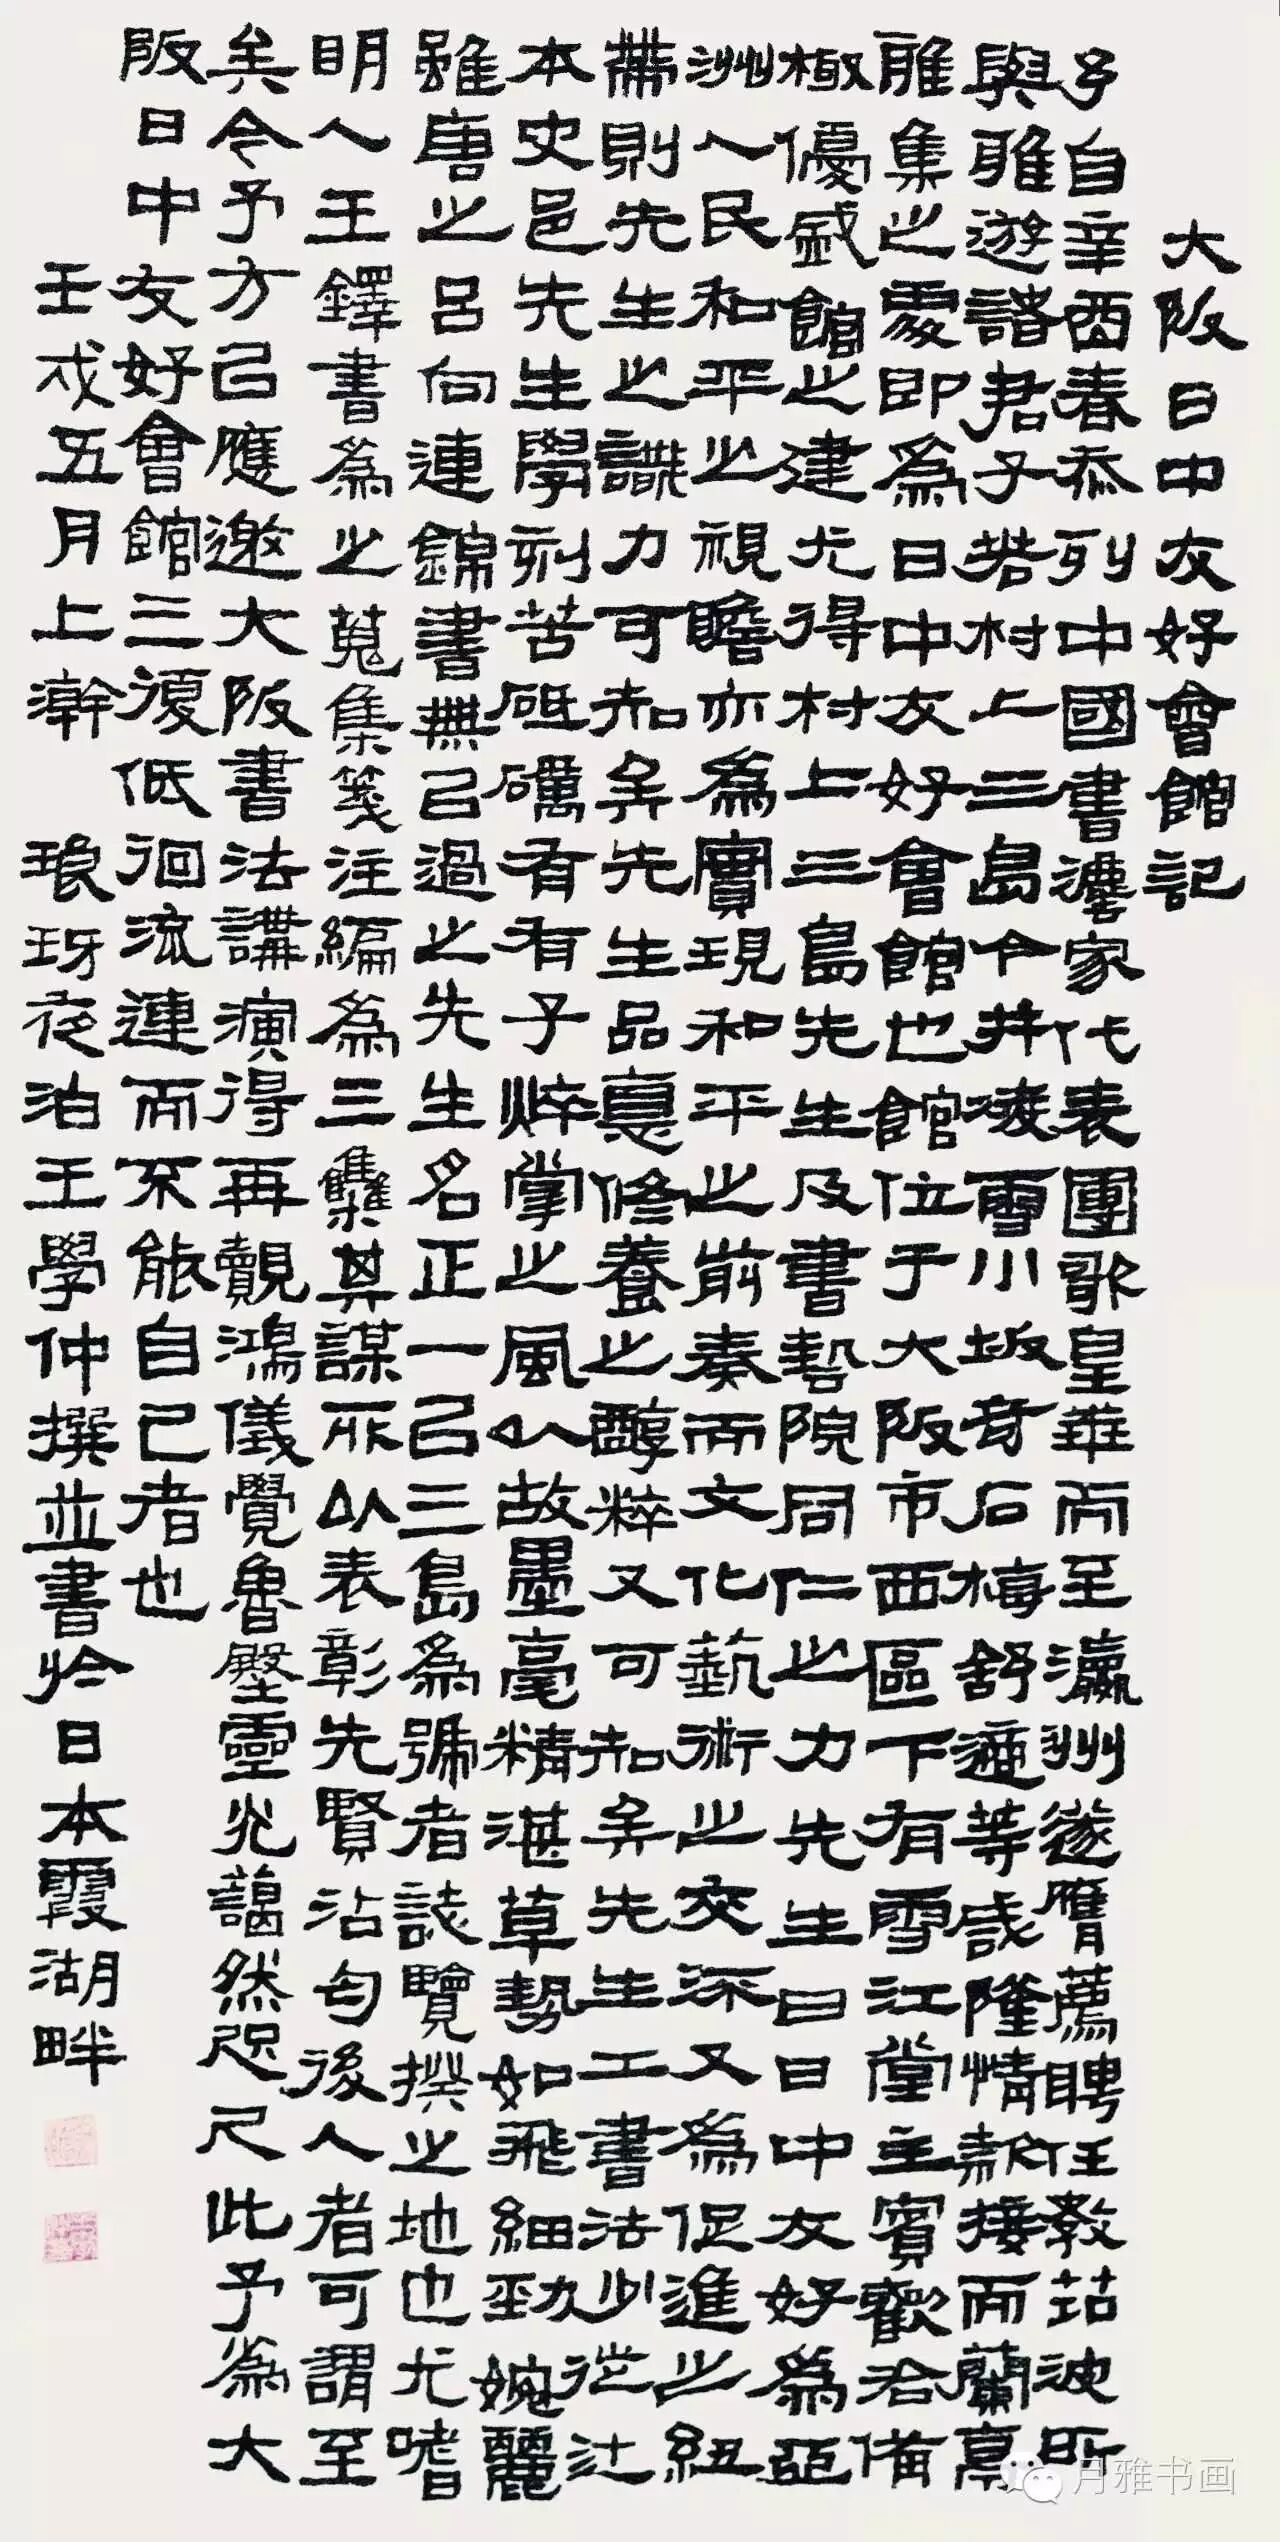 大阪日中友好會館記
予自辛酉春忝列中國書法家代表團歌皇華而至瀛州遂膺薦聘任教茈波所
與雅遊諸君子若村上三島今井凌雪小坂奇石梅舒適等咸隆情款接而蘭亭
雅集之處即為日中友好會館也館位于大阪市西區下有雪江堂主賓歡洽備
極優盛館之建尤得村上三島先生及書藝院同仁之力先生曰日中友好為亞
洲人民和平之視瞻亦為實現和平之前奏而文化藝術之交深又為促進之紐
帶則先生之識力可知矣先生品惪修養之醇粹又可知矣先生工書法少從辻
本史邑先生學刻苦砥礪有有子焠掌之風以故墨毫精湛草勢如飛細勁婉麗
雖唐之呂向連錦書無已過之先生名正一己三島為號者誌覽揆之地也尤嗜
明人王鐸書為之蒐集箋注編為三集其謀所以表彰先賢沾匄後人者可謂至
矣今予方已應邀大阪書法講演得再覿鴻儀覺魯壂靈光藹然咫尺此予為大
阪日中友好會館三復低徊流連而不能自己者也
壬戌五月上澣 琅玡夜泊王學仲撰並書於日本霞湖畔
月雅书画